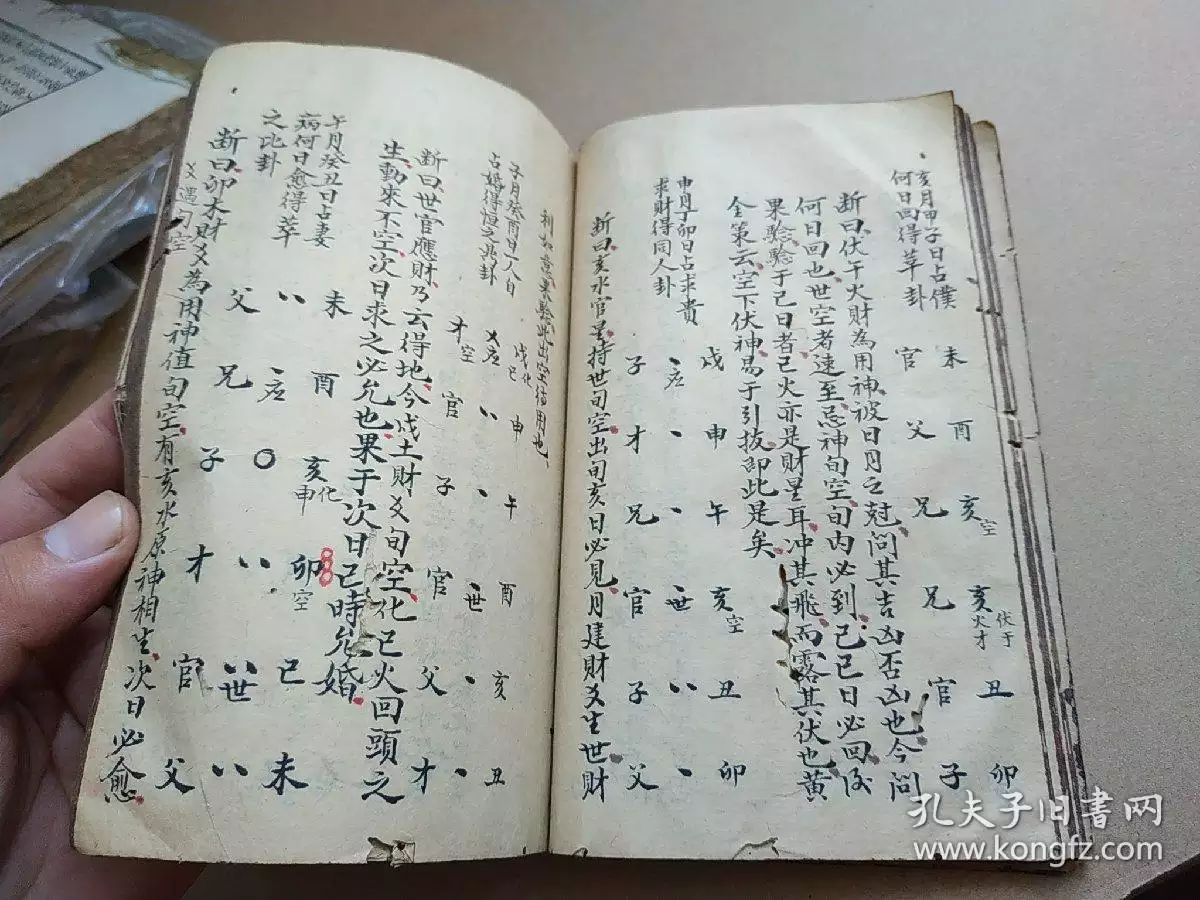 亥月甲子日占僕
何日回得革卦
未
官
酉
父
亥空
兄
亥
伏于
火才
兄
丑
官
卯
子
断曰伏于火財為用神被日月之尅问其吉凶否凶也今問
何日回也世空者速至忌神旬空旬内必到己巳日必回后
果驗驗于巳日者巳火亦是財星耳冲其飛而露其伏也黄
全策云空下伏神易于引拔即此是矣
申月丁卯日占求貴
求財得同人卦
戌
应
子
申
才
午
兄
亥空
世
官
丑
子
卯
父
断曰亥水官星持世旬空出旬亥日必見月建財爻生世財
利如意果驗此出空值用也
子月癸酉日一人自
占婚得恒之兆卦
戌化巳
应
才空
申
官
午
子
酉
世
官
亥
父
丑
才
断曰世官應財乃云得地今戌土財爻旬空化巳火回頭之
生動來不空次日求之必允也果于次日巳時允婚
午月癸丑日占妻
病何日愈得萃
之比卦
未
父
酉
应
兄
亥化申
子
卯空
才
巳
世
官
未
父
断曰卯木財爻為用神值旬空有亥水原神相生次日必愈
爻遇旬空
孔夫子旧书网
www.kongfz.com